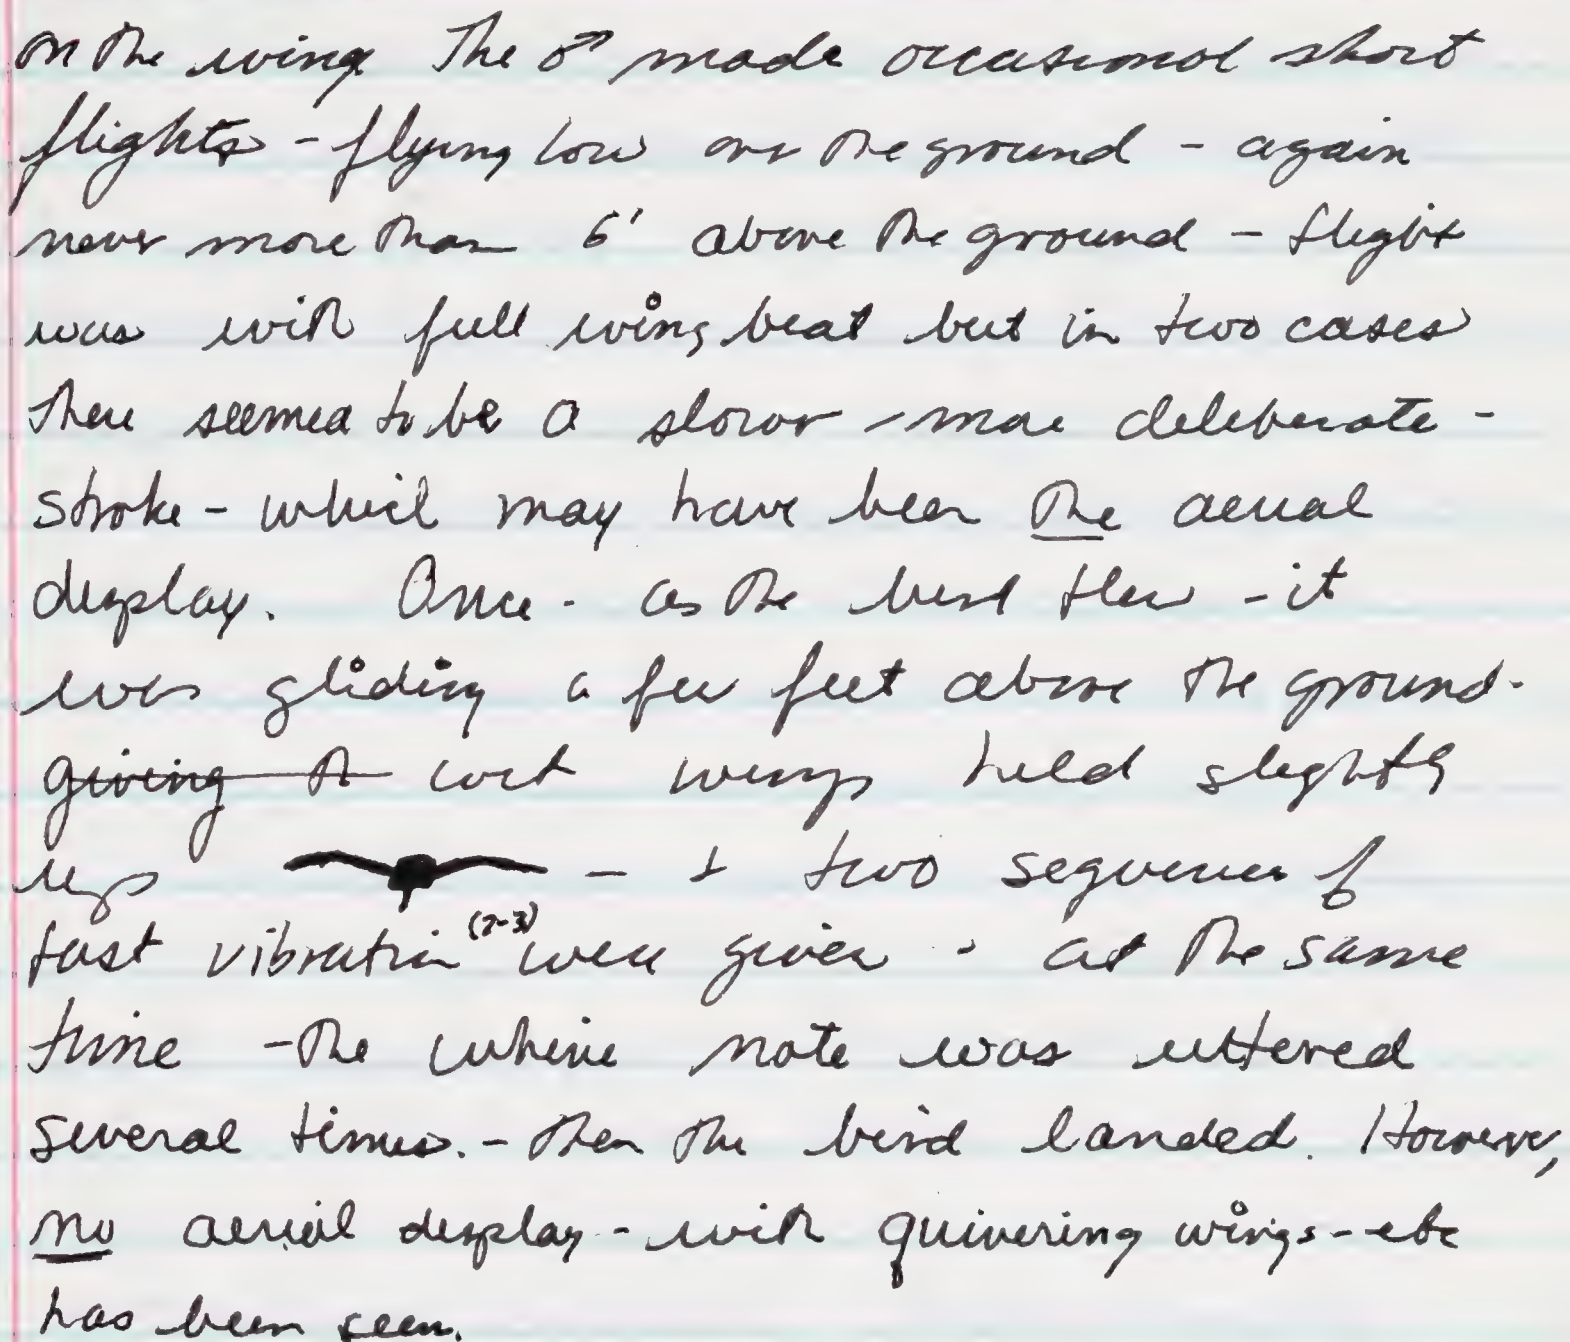 on the wing The ♂ made occasional short
flights - flying low over the ground - again
never more than 6' above the ground - flight
was with full wing beat but in two cases
there seemed to be a slower - more deliberate -
stroke - which may have been the aerial
display. Once - as the bird flew - it
was gliding a few feet above the ground -
giving th wit wings held slightly
up - + two sequences of
fast vibration (2-3) were given - at the same
time - the whine note was uttered
several times. - then the bird landed. However,
no aerial display - with quivering wings - etc
has been seen.